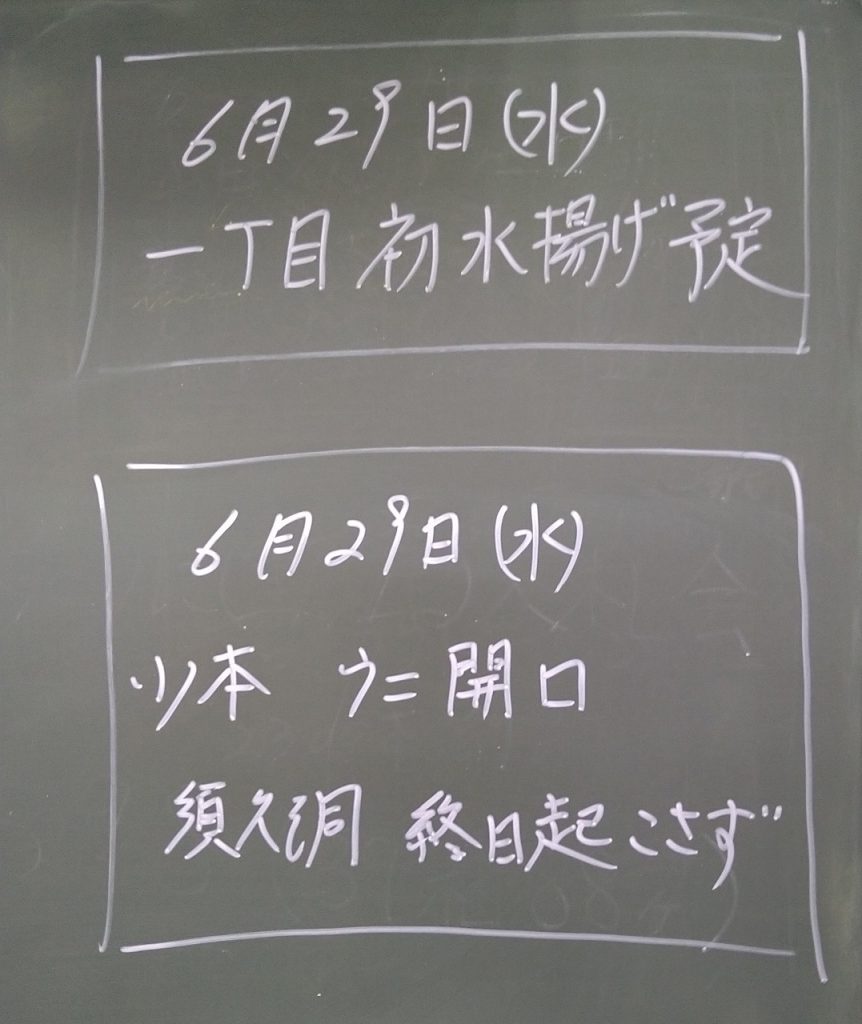 6月29日(水)
一丁目 初水揚げ予定
6月29日(水)
小本 ウニ開口
須久洞 終日起こさず